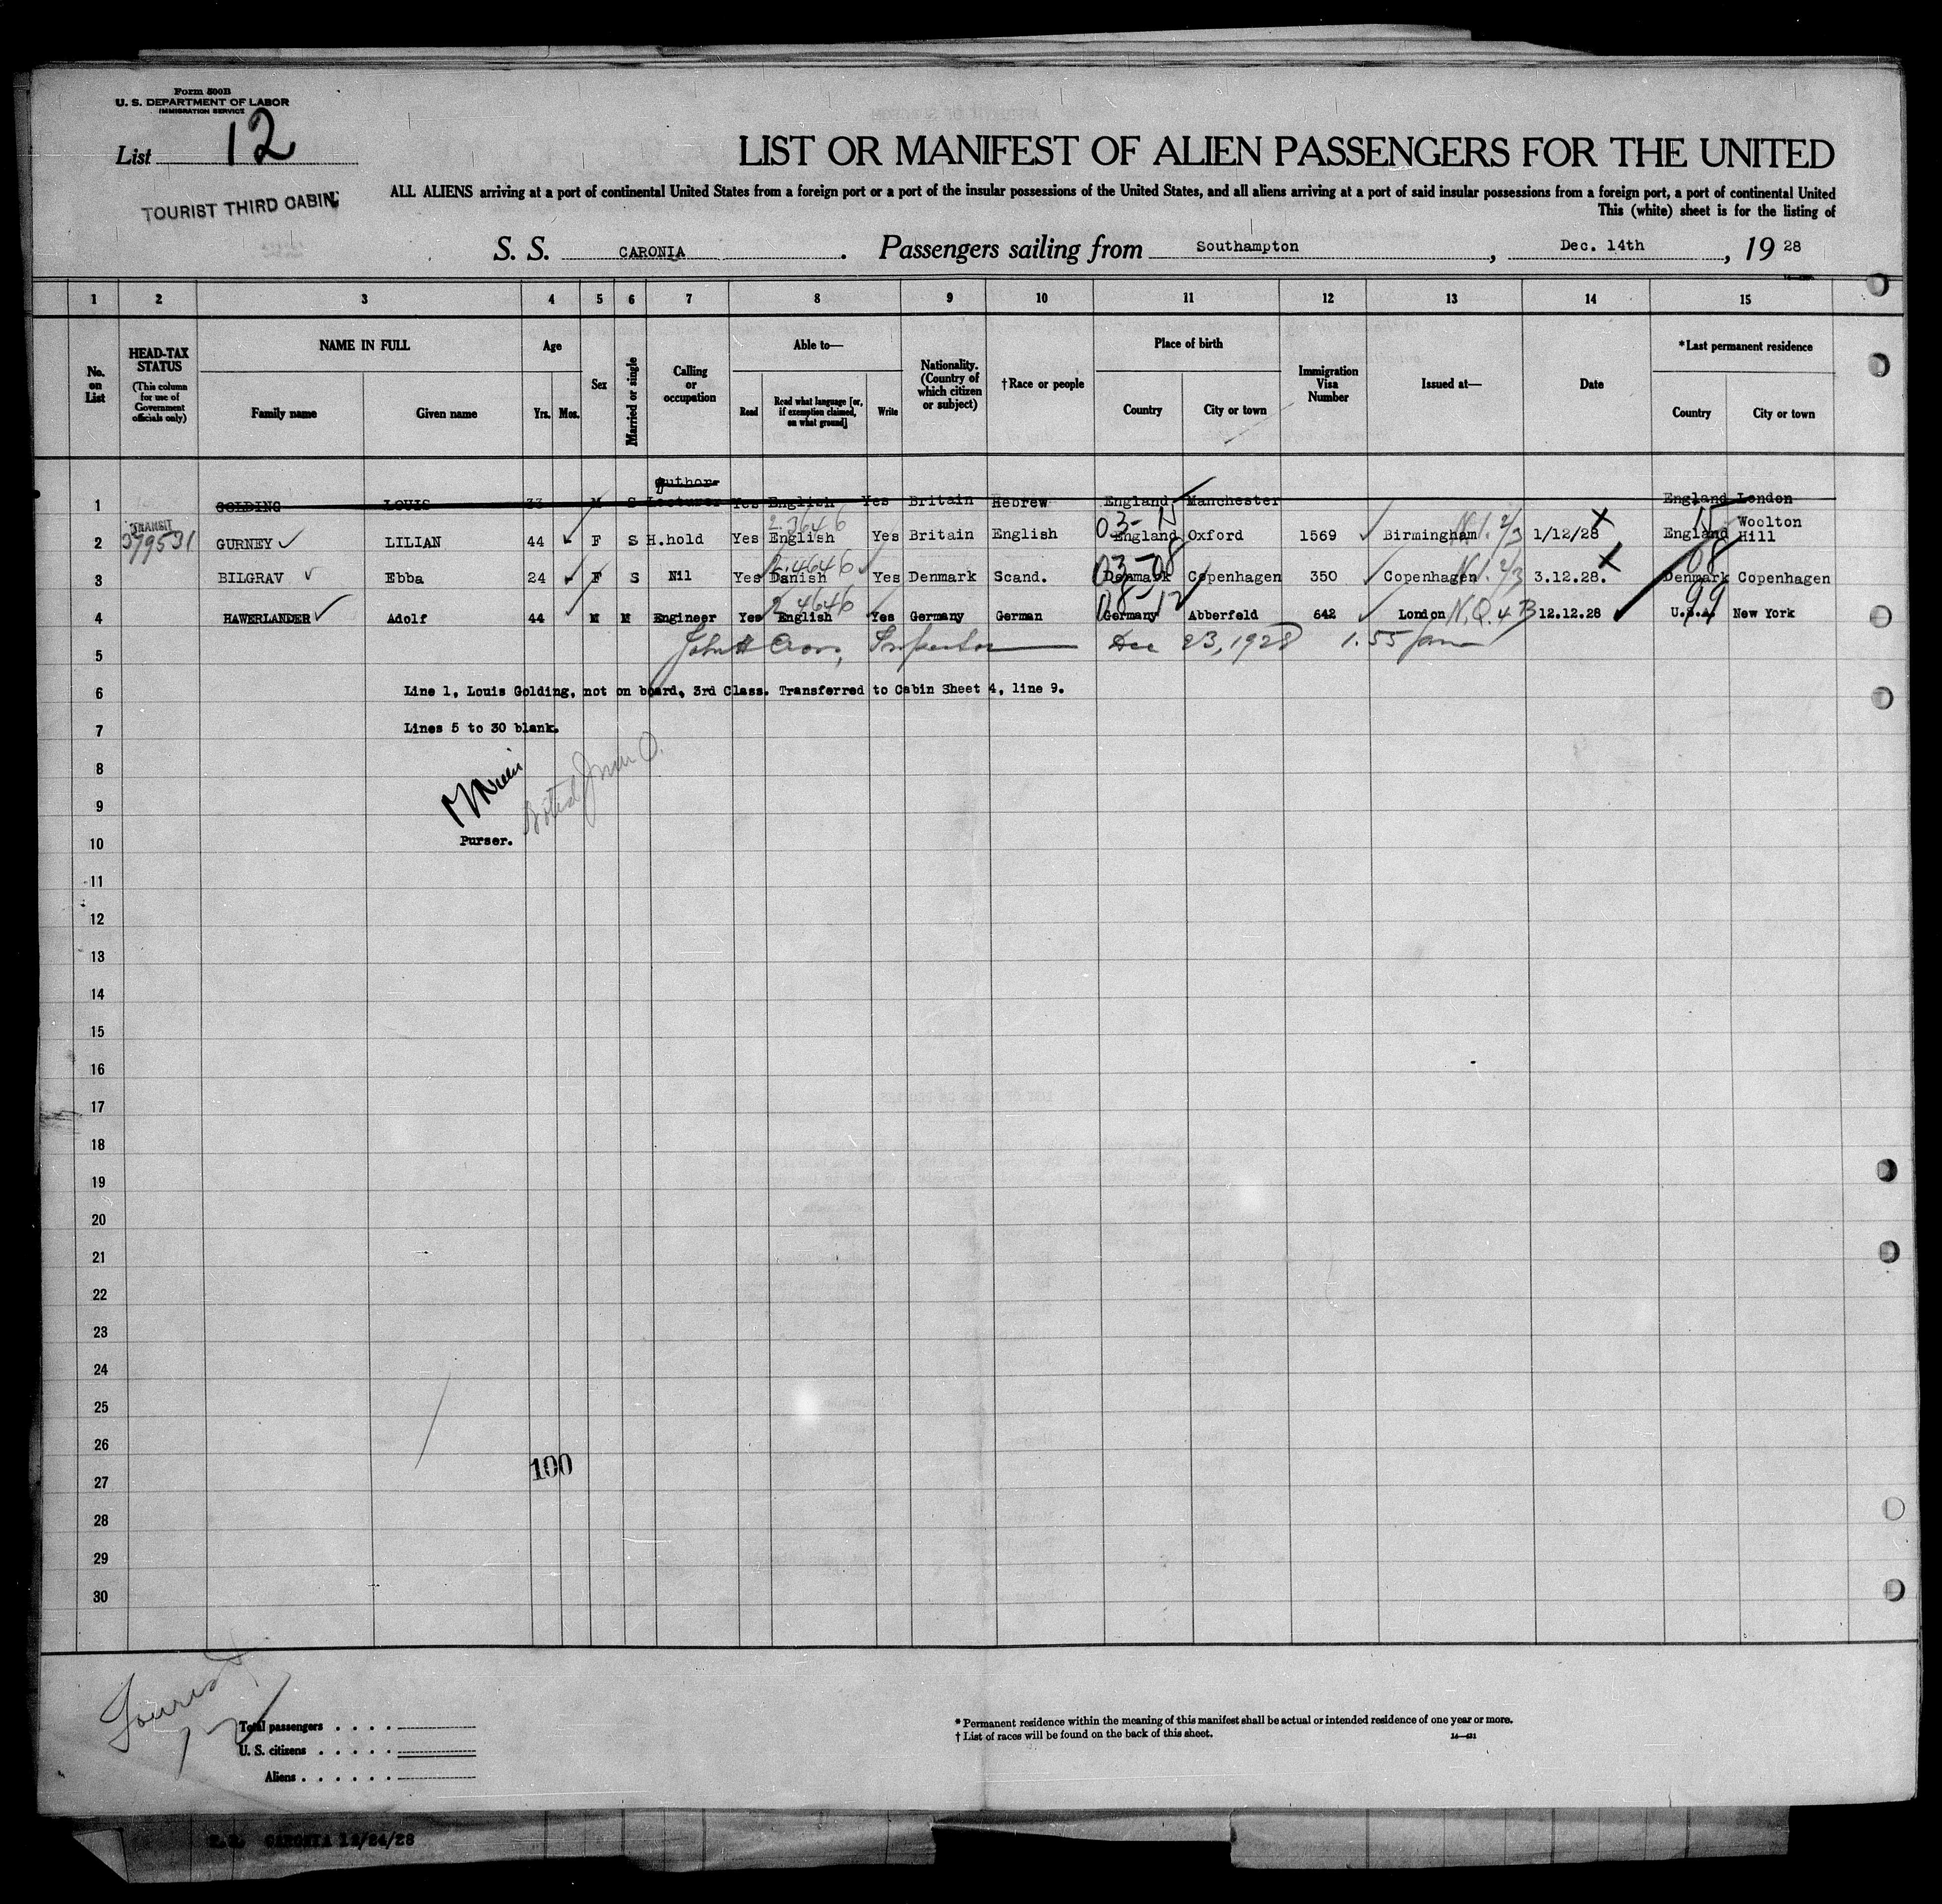 Form 500B
U. S. DEPARTMENT OF LABOR
IMMIGRATION SERVICE
List 12
LIST OR MANIFEST OF ALIEN PASSENGERS FOR THE UNITED
ALL ALIENS arriving at a port of continental United States from a foreign port or a port of the insular possessions of the United States, and all aliens arriving at a port of said insular possessions from a foreign port, a port of continental United
TOURIST THIRD CABIN
This (white) sheet is for the listing of
S. S. CARONIA . Passengers sailing from Southampton , Dec. 14th , 19 28
1 2 3 4 5 6 7 8 9 10 11 12 13 14 15
No. on List
HEAD-TAX STATUS (This column for use of Government officials only)
NAME IN FULL
Family name Given name
Age
Yrs. Mos.
Sex
Married or single
Calling or occupation
Able to—
Read Read what language [or, if exemption claimed, on what ground] Write
Nationality. (Country of which citizen or subject)
†Race or people
Place of birth
Country City or town
Immigration Visa Number
Issued at—
Date
*Last permanent residence
Country City or town
Author
1 GOLDING LOUIS 33 M S Lecturer Yes English Yes Britain Hebrew England Manchester England London
TRANSIT
379531
2.3646
03-15
15
2 GURNEY LILIAN 44 F S H.hold Yes English Yes Britain English England Oxford 1569 Birmingham 1/12/28 England Woolton Hill
2.4646
03-08
08
3 BILGRAV Ebba 24 F S Nil Yes Danish Yes Denmark Scand. Denmark Copenhagen 350 Copenhagen 3.12.28. Denmark Copenhagen
2 4646
08-12
99
4 HAWERLANDER Adolf 44 M M Engineer Yes English Yes Germany German Germany Abberfeld 642 London N.Q. 4 B 12.12.28 U.S.A. New York
5 John Inspector Dec 23, 1928 1.55 pm
6 Line 1, Louis Golding, not on board, 3rd Class. Transferred to Cabin Sheet 4, line 9.
7 Lines 5 to 30 blank.
8
9
10 Purser.
11
12
13
14
15
16
17
18
19
20
21
22
23
24
25
26
100
27
28
29
30
Tourist
12
Total passengers
U. S. citizens
Aliens
* Permanent residence within the meaning of this manifest shall be actual or intended residence of one year or more.
† List of races will be found on the back of this sheet.
CARONIA 12/24/28